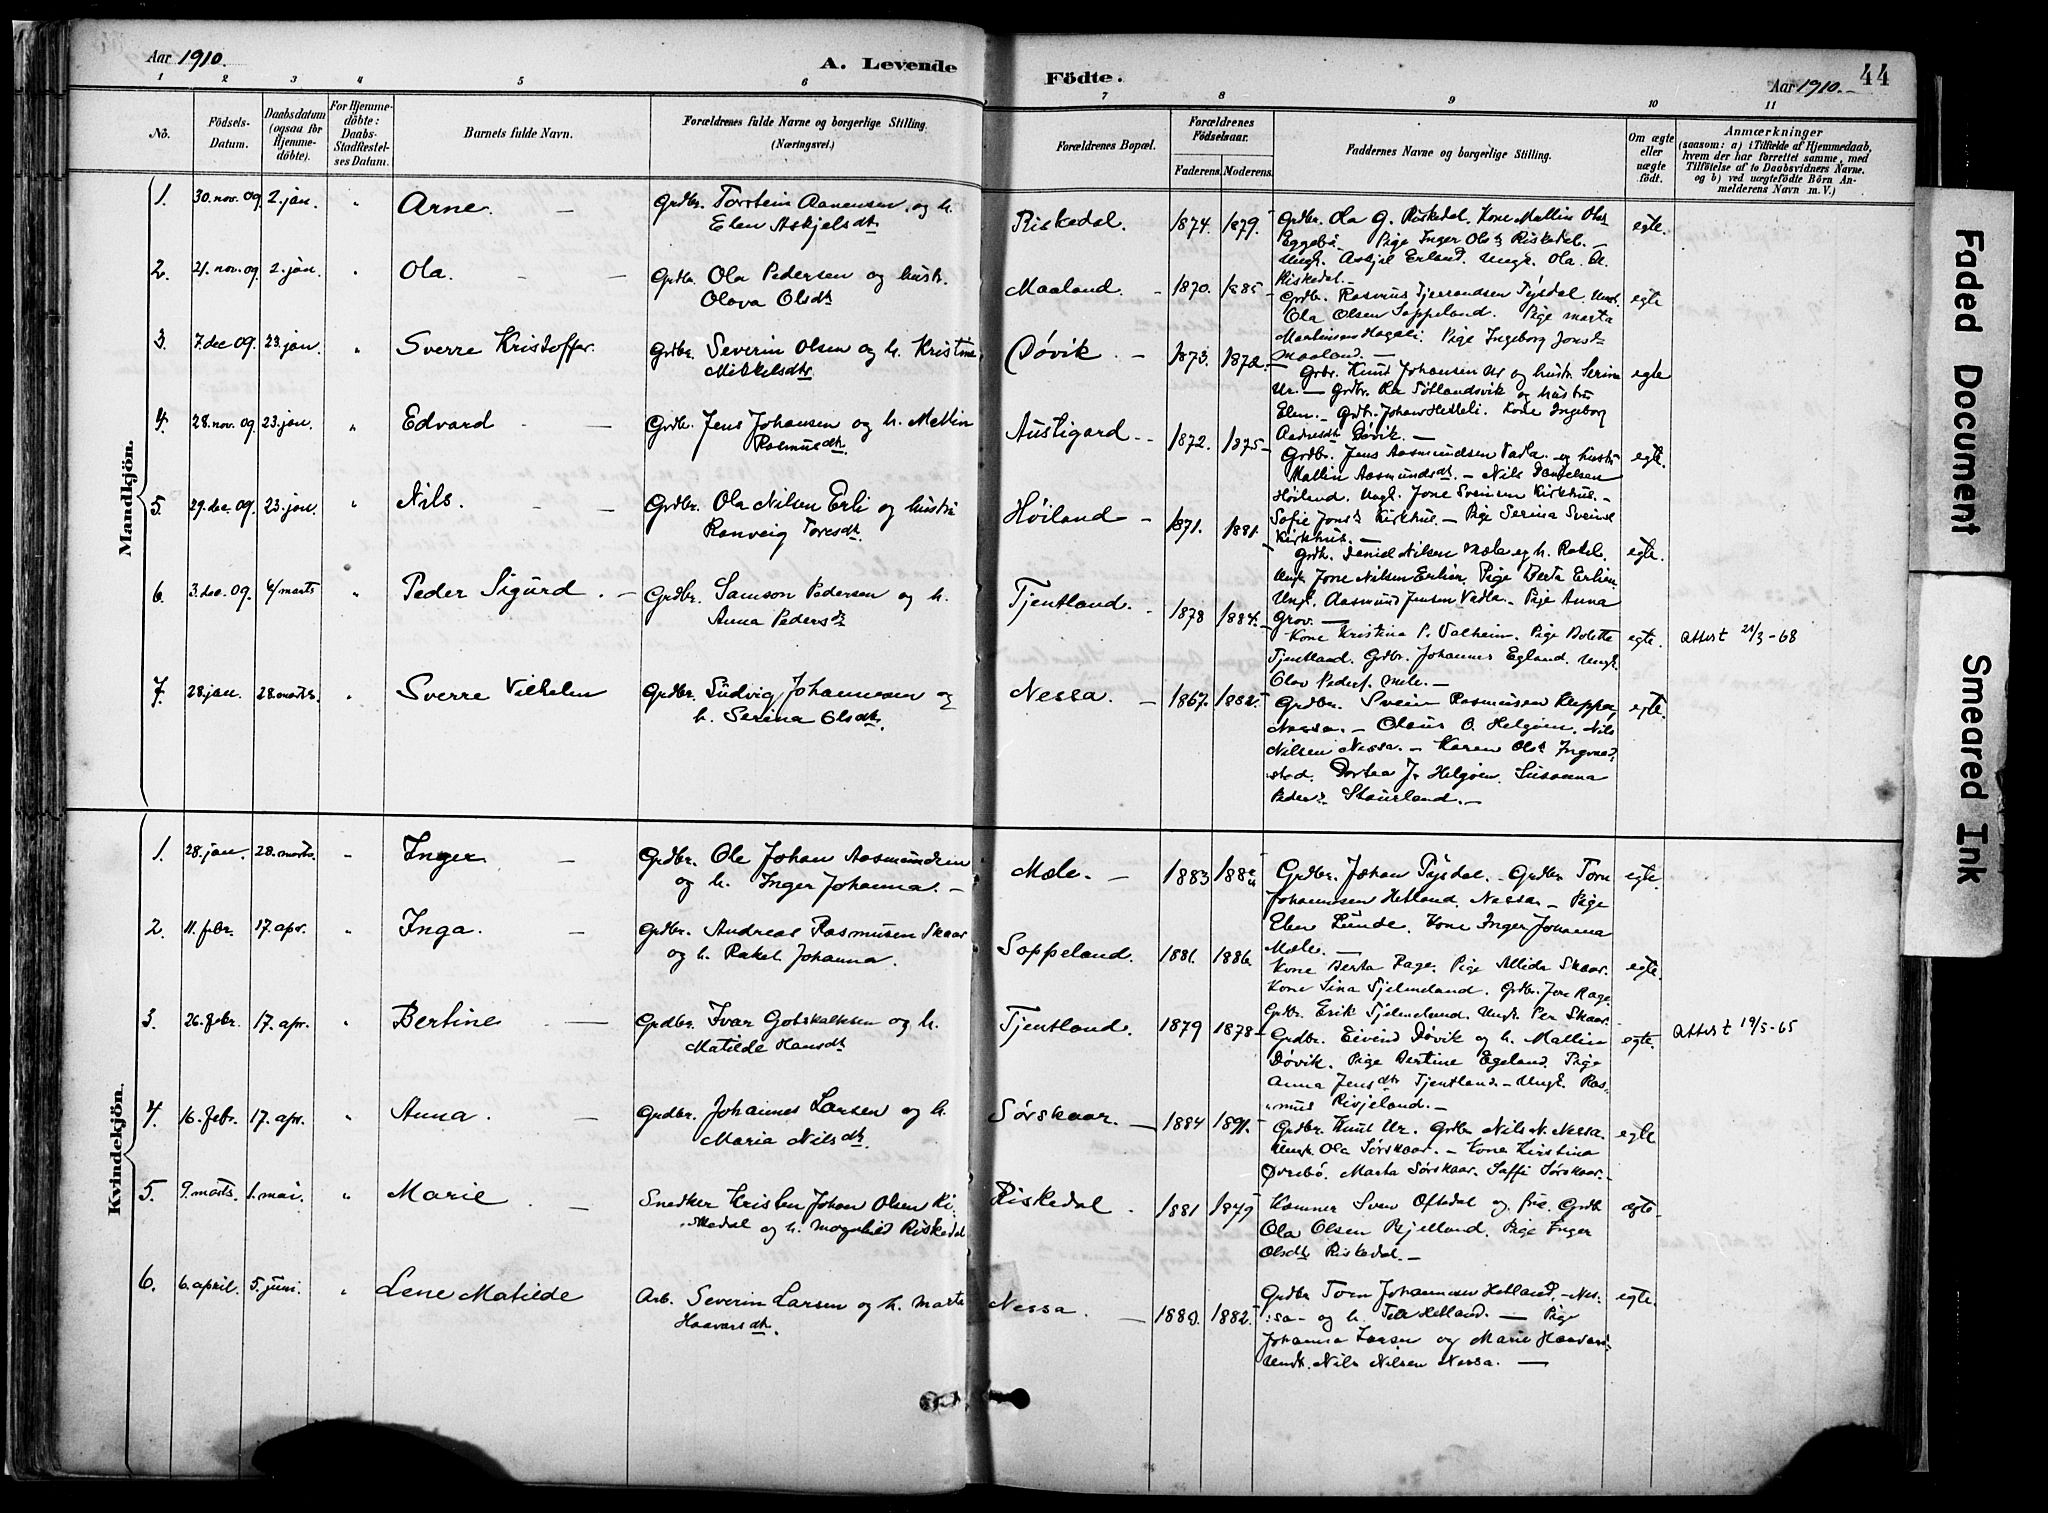 Aar 1910. A. Levende
Födte. Aar 1910. 44
1 2 3 4 5 6 7 8 9 10 11
No.
Födsels-
Datum.
Daabsdatum
(ogsaa for
Hjemme-
döbte).
For Hjemme-
döbte:
Daabs-
Stadfestel-
ses Datum.
Barnets fulde Navn.
Forældrenes fulde Navne og borgerlige Stilling.
(Næringsvei.)
Forældrenes Bopæl.
Forældrenes
Födselsaar.
Faderens. Moderens.
Faddernes Navne og borgerlige Stilling.
Om ægte
eller
uægte
födt.
Anmærkninger
(saasom: a) i Tilfælde af Hjemmedaab,
hvem der har forrettet samme, med
Tilföielse af to Daabsvidners Navne.
og b) ved uegtefödte Börn An-
melderens Navn m. V.)
Mandkjön.
1. 30. nov. 09. 2. jan. " Arne. — Grdbr. Torstein Aanensen, og h.
Elen Askjelsdtr
Riskedal. 1874. 1879.
Grdbr. Ola G. Riskedal. Kone Mallin Olsdr
Eggebö. Pige Inger Olsdr Riskedal. —
Ungk. Askjel Erland. Ungk. Ola
Riskedal. —
egte.
2. 21. nov. 09. 2. jan. " Ola. — Grdbr. Ola Pedersen og hustr.
Olava Olsdtr
Maaland. 1870. 1885
Grdbr. Rasmus Tjerandsen Tysdal. Ungk.
Ola Olsen Soppeland. Pige Marta
Martinsen Hagali. Pige Ingeborg Jonsdr
Maaland. —
egte
3. 7. dec 09. 23. jan. " Sverre Kristoffer. Grdbr. Severin Olsen og h. Kristine
Mikkelsdtr
Døvik. — 1873. 1872.
Grbr. Knud Johansen Ur og hustr. Serina
Ur. — Grdbr. Ola Sørlandsvik og hustru
Elen. — Grdbr. Johan Helleli. Kone Ingeborg
Døvik. —
egte
4. 28. nov. 09. 23. jan. " Edvard — Grdbr. Jens Johansen og h. Mallin
Rasmusdtr
Austigard. — 1872. 1875
Grdbr. Jens Aasmundsen Vadla. og hustr
Mallin Aasmundsdtr. — Nils Danielsen
Høiland. Ungk. Jone Svensen Kirkhus. —
Sofie Jonsdr Kirkhus. — Pige Serina Svensdr
Kirkhus. —
egte.
5. 29. dec. 09. 23. jan. " Nils. — Grdbr. Ola Nilsen Erli og hustru
Ranveig Toresdtr
Høiland — 1871. 1881.
Grdbr. Daniel Nilsen Mæle og h. Rakel.
Ungk. Jone Nilsen Erlien. Pige Berta Erlien.
Ungk. Aasmund Jensen Vadla. — Pige Anna
Grov. —
egte.
6. 3. dec. 09. 6/ marts " Peder Sigurd. — Grdbr. Samson Pedersen og h.
Anna Pedersdtr
Tjentland. — 1878 1884.
Kone Kristina P. Valheim. Pige Bolette
Tjentland. Grdbr. Johannes Egland. Ungk.
Olav Peders. Mele. —
egte. Attest 21/3-68
7. 28. jan. 28. marts. " Sverre Vilhelm Grdbr. Ludvig Johannesen og
h. Serina Olsdtr.
Nessa. — 1867. 1882.
Grdbr. Svein Rasmussen
Nessa. — Olaus O. Helgøen. Nils
Nilsen Nessa. — Karen Olsdr
Dortea J. Helgøen. Susanna
Pedersdr Staurland. —
egte.
Kvindekjön.
1. 28. jan. 28. marts. " Inger — Grdbr. Ole Johan Aasmundsen
og h. Inger Johanna. —
Mæle. — 1883
Grdbr. Johan Tysdal. — Grdbr. Torn
Johannesen Hetland. Nessa — Pige
Elen Lunde. Kone Inger Johanna
Mæle. —
egte.
2. 11. febr. 17. apr. " Inga. — Grdbr. Andreas Rasmusen Skaar
og h. Rakel Johanna.
Soppeland. 1881. 1886.
Kone Berta Rage. Pige Allida Skaar.
Kone Sina Tjelmeland. Grdbr. Jone Rage.
Grdbr. Erik Tjelmeland. Ungk. Per Skaar.
egte.
3. 26. febr. 17. apr. " Bertine — Grdbr. Ivar Gotskalksen og h.
Matilde Hansdtr
Tjentland. 1879 1878
Grdbr. Eivind Døvik og h. Mallin
Døvik. Pige Bertine Egeland. Pige
Anna Jensdtr Tjentland. — Ungk. Ras-
mus Rivjeland. —
egte. Attest 19/5-65
4. 16. febr. 17. apr. " Anna. — Grdbr. Johannes Larsen og h.
Maria Nilsdtr.
Sørskaar. — 1884 1891.
Grdbr. Knud Ur. Grdbr Nils N. Nessa.
Ungk. Ola Sørskaar. — Kone Kirstina
Øvrebö. Marta Sørskaar. Saffi Sørskaar.
egte
5. 9. marts. 1. mai. " Marie. — Snedker Kristen Johan Olsen Ri-
skedal og h. Magnhild Riskedal
Riskedal. 1881 1879
Kommer Sven Oftedal og frue. Grdb
Ola Olsen Bjelland. Pige Inger
Olsdtr Riskedal. —
egte
6. 6. april. 5. juni. " Lene Matilde Arb. Severin Larsen og h. Marta
Haavarsdtr.
Nessa. — 1880. 1882.
Grdbr Torn Johannesen Hetland. — Nes-
sa — og h. Hetland. — Pige
Johanna Larsen og Marie
Ungk. Nils Nilsen Nessa. —
egte.
Faded Document
Smeared Ink